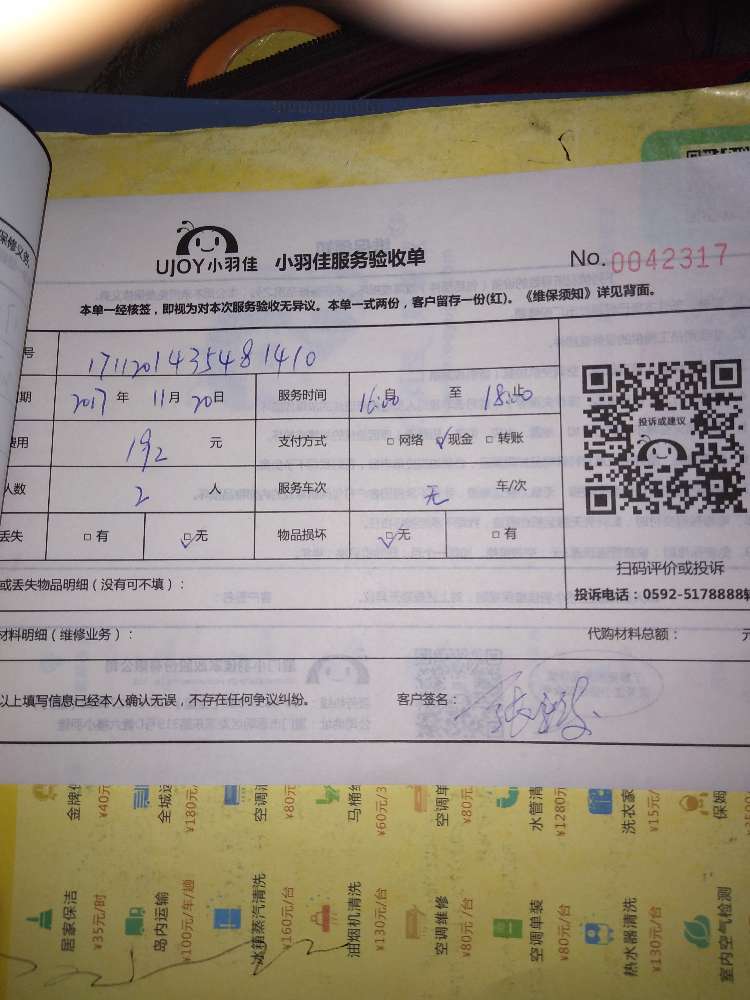 保修义务
UJOY小羽佳 小羽佳服务验收单 No.0042317
本单一经核签，即视为对本次服务验收无异议。本单一式两份，客户留存一份(红)。《维保须知》详见背面。
号 171120143548 1410
期 2017 年 11月 20日 服务时间 16:00 自 至 18:00 止
费用 192 元 支付方式 □网络 ☑现金 □转账
人数 2 人 服务车次 无 车/次
丢失 □有 ☑无 物品损坏 ☑无 □有
投诉或建议
扫码评价或投诉
投诉电话：0592-5178888转
或丢失物品明细（没有可不填）：
材料明细（维修业务）： 代购材料总额： 元
以上填写信息已经本人确认无误，不存在任何争议纠纷。 客户签名：
金牌保
¥40元
全城运
¥180元
空调清
¥80元
马桶维
¥60元/3
空调单
¥80元
水管清
¥1280元
洗衣家
¥15元/
保姆
居家保洁
¥35元/时
岛内运输
¥100元/车/趟
冰箱蒸汽清洗
¥160元/台
油烟机清洗
¥130元/台
空调维修
¥80元/台
空调单装
¥80元/台
热水器清洗
¥130元/台
室内空气检测